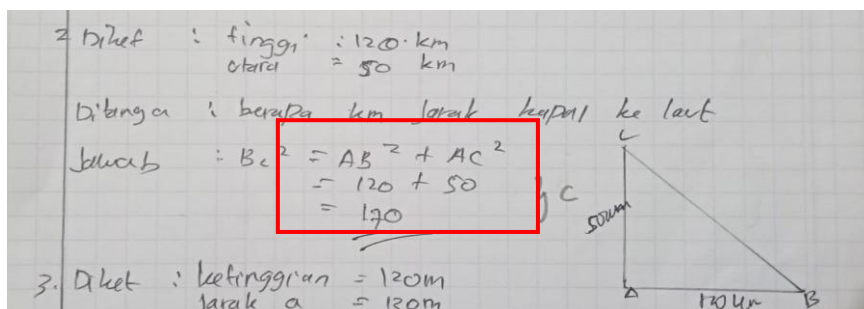 2 Diket : tinggi : 120 km
utara = 50 km
Ditanya : berapa km jarak kapal ke laut
Jawab : Bc² = AB² + AC²
= 120 + 50
= 170
} C
C
50km
A
120 km
B
3. Diket : ketinggian = 120m
jarak a = 130m